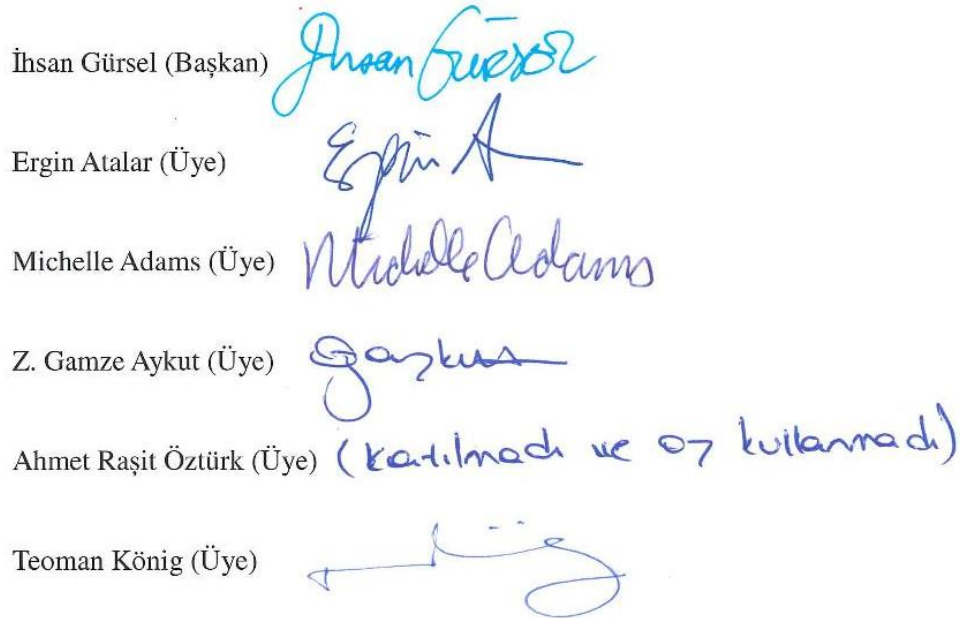 İhsan Gürsel (Başkan) İhsan Gürsel
Ergin Atalar (Üye) Ergin A
Michelle Adams (Üye) Michelle Adams
Z. Gamze Aykut (Üye) Gaykut
Ahmet Raşit Öztürk (Üye) (katılmadı ve oy kullanmadı)
Teoman König (Üye)